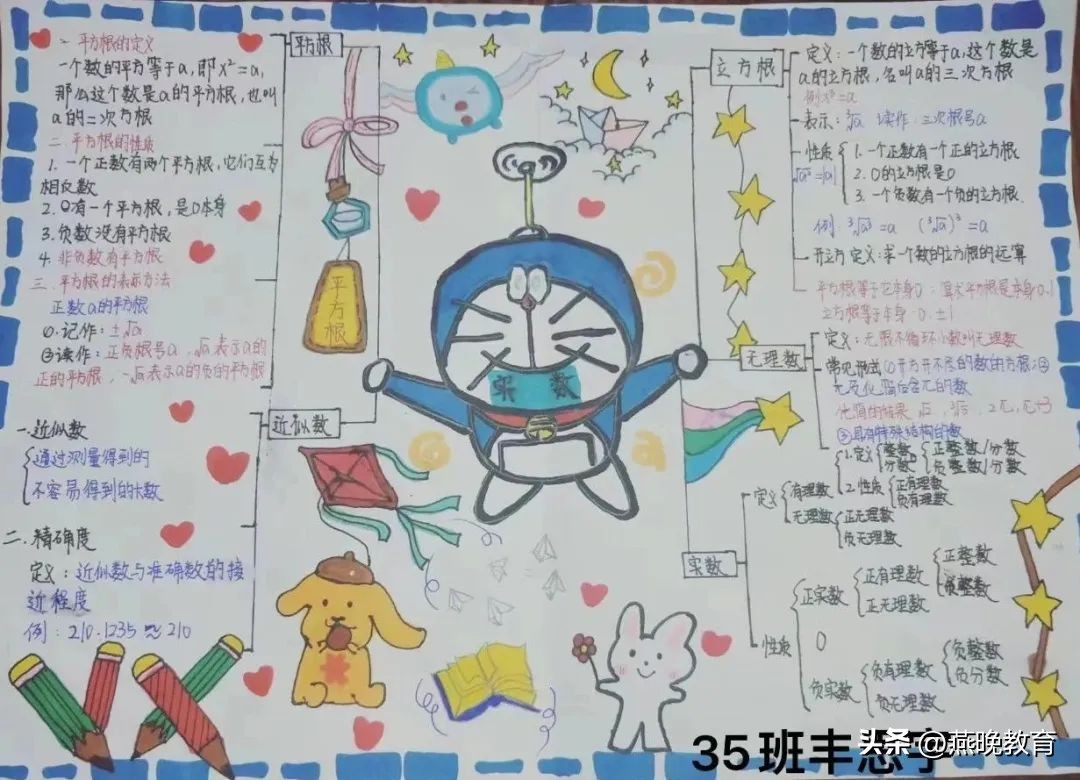 平方根
一 平方根的定义
一个数的平方等于a,即x²=a,
那么这个数是a的平方根,也叫
a的二次方根
二.平方根的性质
1.一个正数有两个平方根,它们互为
相反数
2.0有一个平方根,是0本身
3.负数没有平方根
4.非负数有平方根
三.平方根的表示方法
正数a的平方根
①.记作:±√a
②读作:正负根号a,√a表示a的
正的平方根,-√a表示a的负的平方根
近似数
一.近似数
通过测量得到的
不容易得到的大数
二.精确度
定义:近似数与准确数的接
近程度
例:210.1235≈210
平方根
实数
立方根
定义:一个数的立方等于a,这个数是
a的立方根,名叫a的三次方根
例x³=a
表示:³√a 读作:三次根号a
性质
√a²=|a|
1.一个正数有一个正的立方根
2.0的立方根是0
3.一个负数有一个负的立方根.
例.³√a³=a (³√a)³=a
开立方 定义:求一个数的立方根的运算
平方根等于它本身0:算术平方根是本身0.1
立方根等于本身:0.±1
无理数
定义:无限不循环小数叫无理数
常见形式①开方开不尽的数的方根;②
化简后含π的数
化简的结果
③具有特殊结构的数
实数
定义
有理数
1.定义
整数
正整数/分数
分数
负整数/分数
2.性质
正有理数
负有理数
无理数
正无理数
负无理数
性质
正实数
正有理数
正整数
负整数
正无理数
0
负实数
负有理数
负整数
负分数
负无理数
35班丰思
头条 @燕晚教育